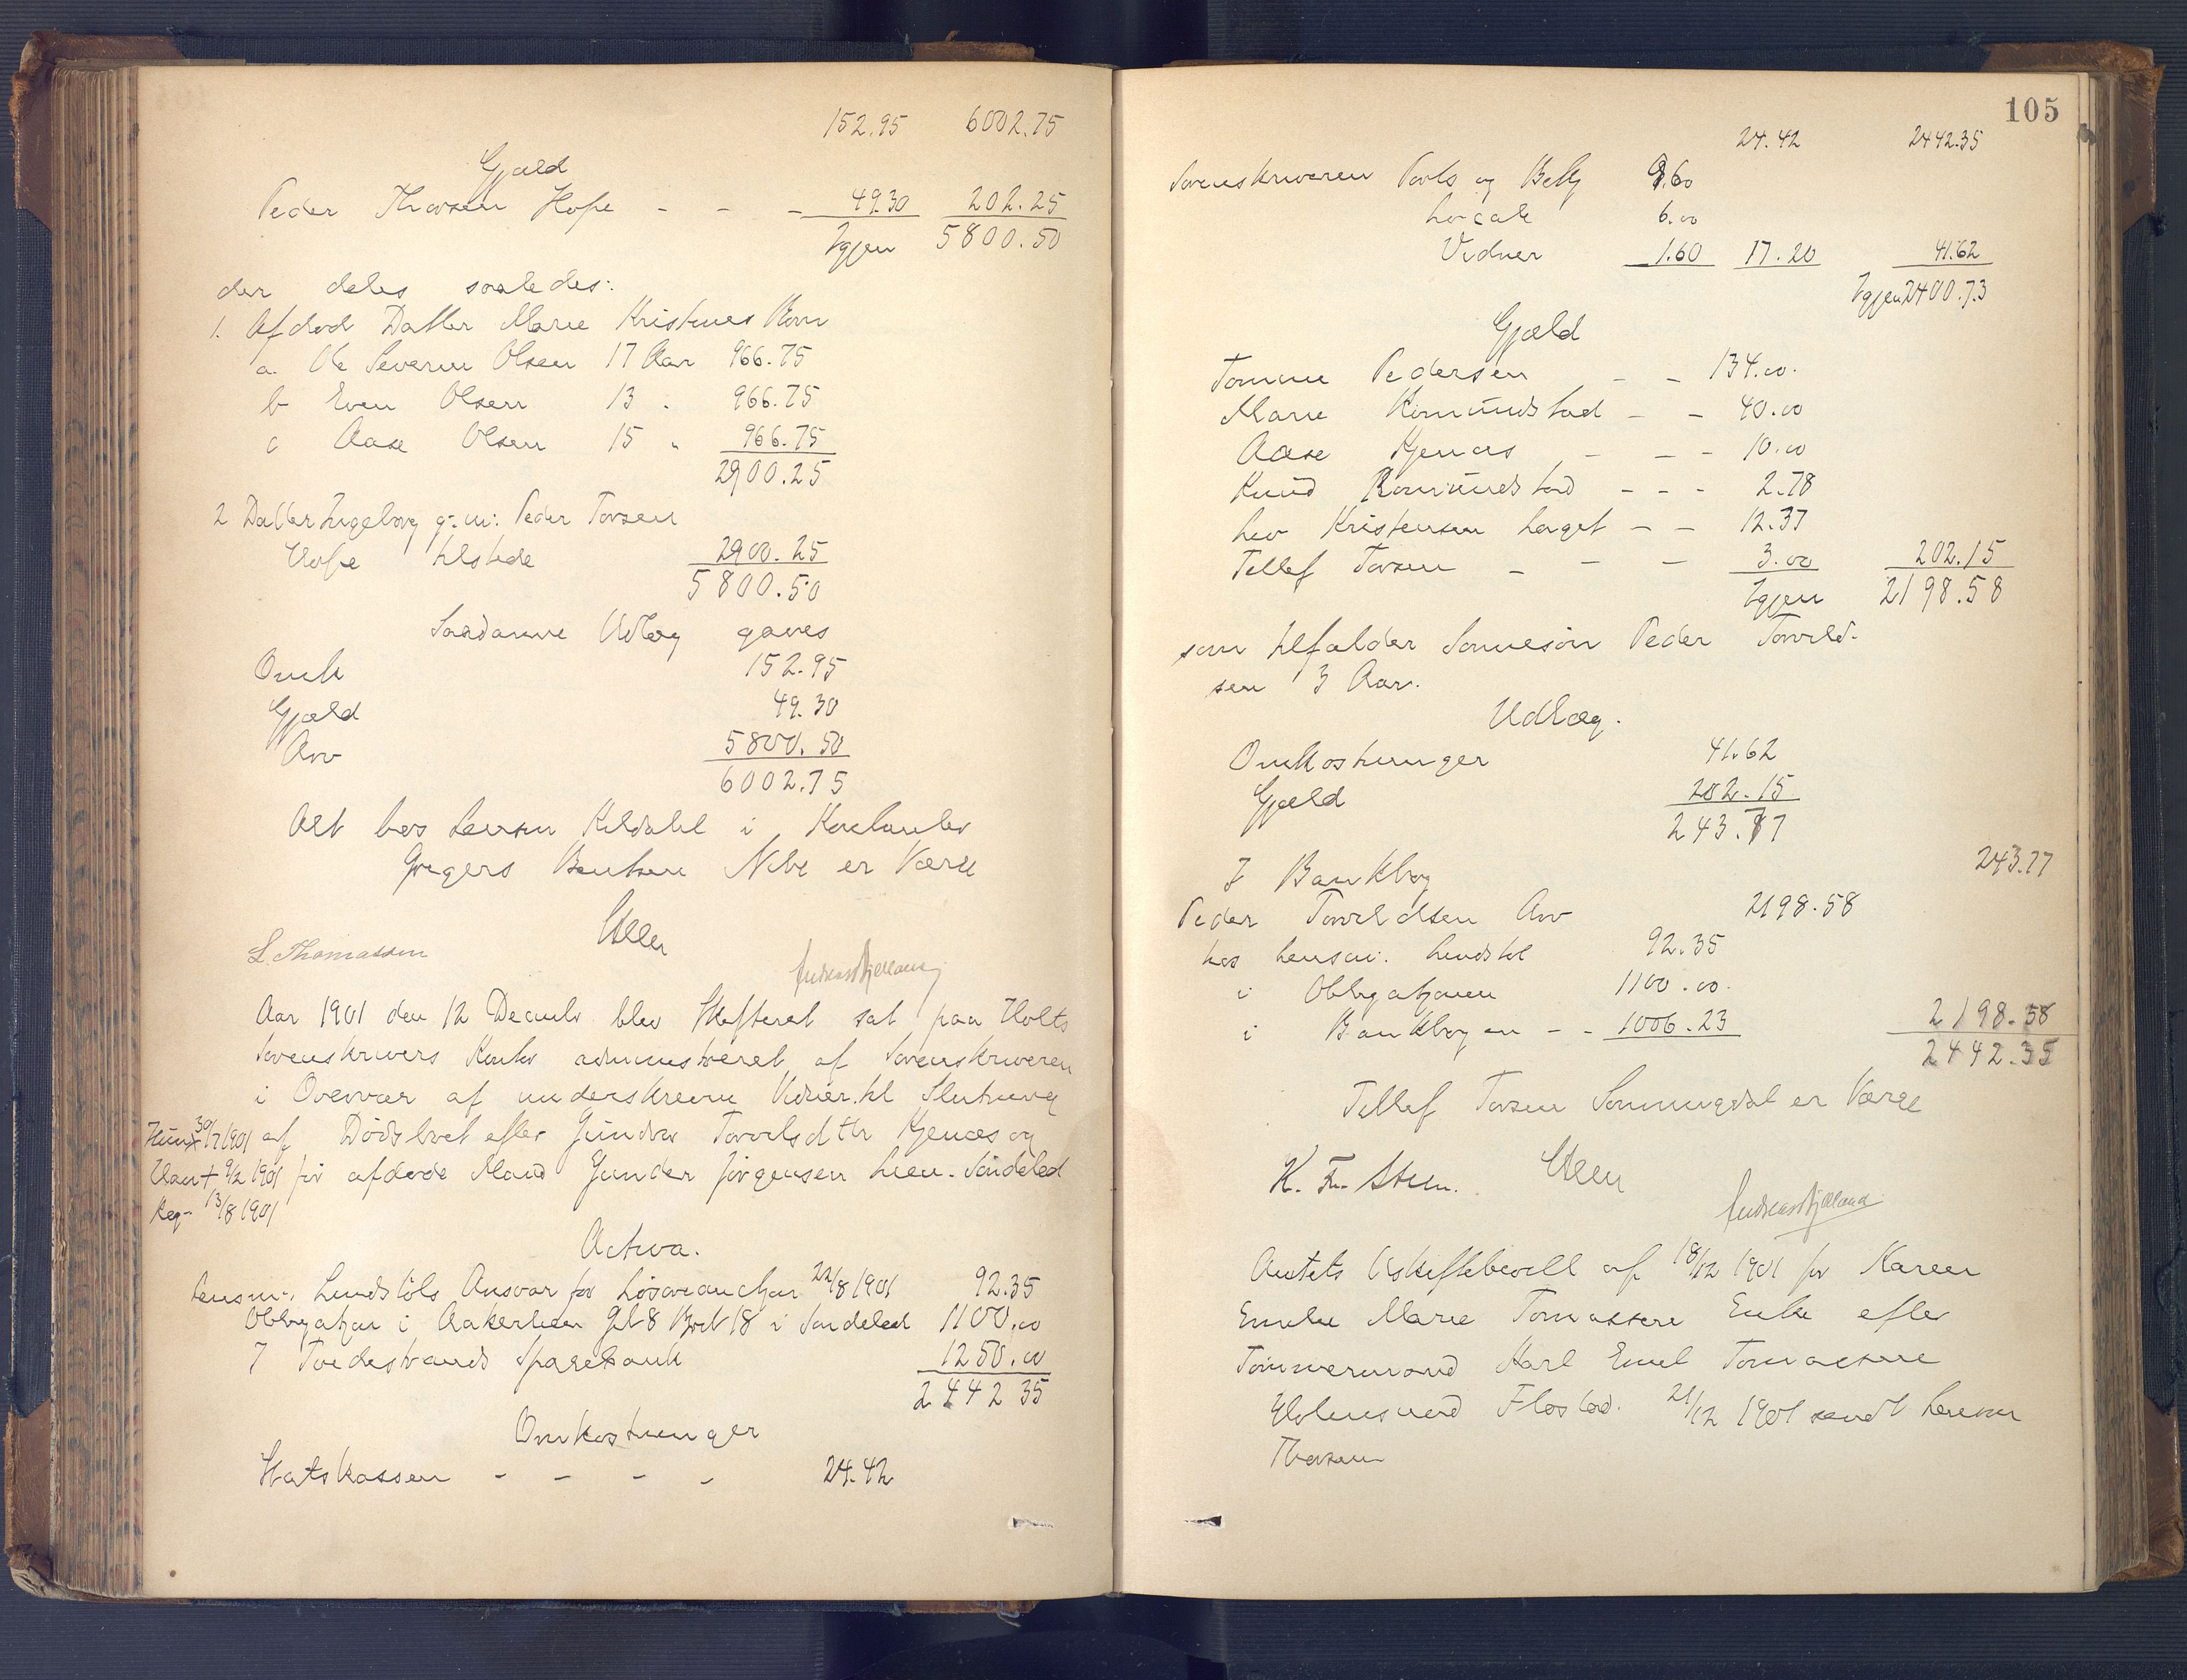 152.95 6002.75
Gjæld
Peder Thorsen Hope - - - 49.30 202.25
Igjen 5800.50
der deles saaledes:
1. Afdød Datter Marie Kristines Børn
a. Ole Severin Olsen 17 Aar 966.75
b Even Olsen 13 " 966.75
c Aase Olsen 15 " 966.75
2900.25
2 Datter Ingeborg g. m: Peder Torsen
Hope tilstede 2900.25
5800.50
Saadanne Udlæg gaves
Omk 152.95
Gjæld 49.30
Arv 5800.50
6002.75
Alt hos Lensm Kildahl i
Gregers Bentsen Nibe er Værge
L. Thomassen
Aar 1901 den 12 Decembr blev Skifteret sat paa Holts
Sorenskrivers Kontor administreret af Sorenskriveren
i Overvær af underskrevne Vidner til Slutning
af Dødsboet efter Gunder Torvilsdttr Kjenæs og
Hun + 30/7 1901
før afdøde Mand Gunder Jørgensen Leen. Søndeled
Man + 9/2 1901
Reg- 13/8 1901
Activa.
Lensm. Lundstøls Ansvar for Løsøreauction 22/8 1901 92.35
Obligation i Aakerleen Gl 8 Brt 18 i Søndeled 1100.00
I Tvedestrands Sparebank 1250.00
2442 35
Omkostninger
Statskassen - - - - 24.42
105
24.42 2442.35
Sorenskriveren Porto og Bekg 9.60
Locale 6.00
Vidner 1.60 17.20 41.62
Igjen 2400.73
Gjæld
Tomine Pedersen - - 134.00.
Marie Romundstad - - 40.00
Aase Kjenæs - - - 10.00
Knud Romundstad - - - 2.78
Lev Kristensen Longet - - 12.37
Tellef Torsen - - - 3.00 202.15
Igjen 2198.58
som tilfalder Sønnesøn Peder Torvild-
sen 3 Aar.
Udlæg.
Omkostninger 41.62
Gjæld 202.15
243.77
I Bankbog 243.77
Peder Torvildsen Arv 2198.58
hos Lensm. Lundstøl 92.35
i Obligationen 1100.00.
i Bankbogen - - 1006.23 2198.58
2442.35
Tellef Torsen Sonningdal er Værge
K. Fr. Steen.
Amtets Uskiftebevill af 18/12 1901 for Karen
Emelie Marie Tomassen Enke efter
Tømmermand Karl Emil Tomassen
Holmesund Flosta. 21/12 1901 sendt Lensm
Thorsen